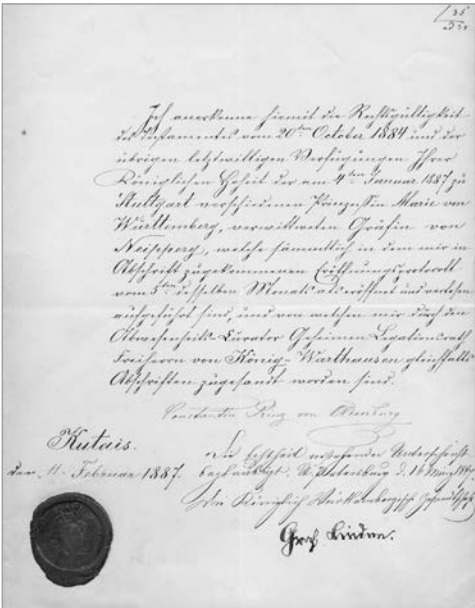 Ich anerkenne hiemit die Rechtsgültigkeit
des Testamentes vom 20ten October 1884 und der
übrigen letztwilligen Verfügungen Ihrer
Königlichen Hoheit der am 4ten Januar 1887 zu
Stuttgart verschiedenen Prinzessin Marie von
Württemberg, verwittweten Gräfin von
Neipperg, welche sämmtlich in dem mir in
Abschrift zugekommenen Eröffnungsprotocoll
vom 5ten desselben Monats als eröffnet und
aufgeführt sind, und von welchen mir durch den
Abwesenheits-Curator Geheimen Legationsrath
Freiherrn von König-Warthausen gleichfalls
Abschriften zugesandt worden sind.
Constantin Prinz von Oldenburg
Kutais.
den 11. Februar 1887.
Die Echtheit Unterschrift
beglaubigt. St. Petersburg d. 16 März
Die Königlich Württembergische
Graf Linden.